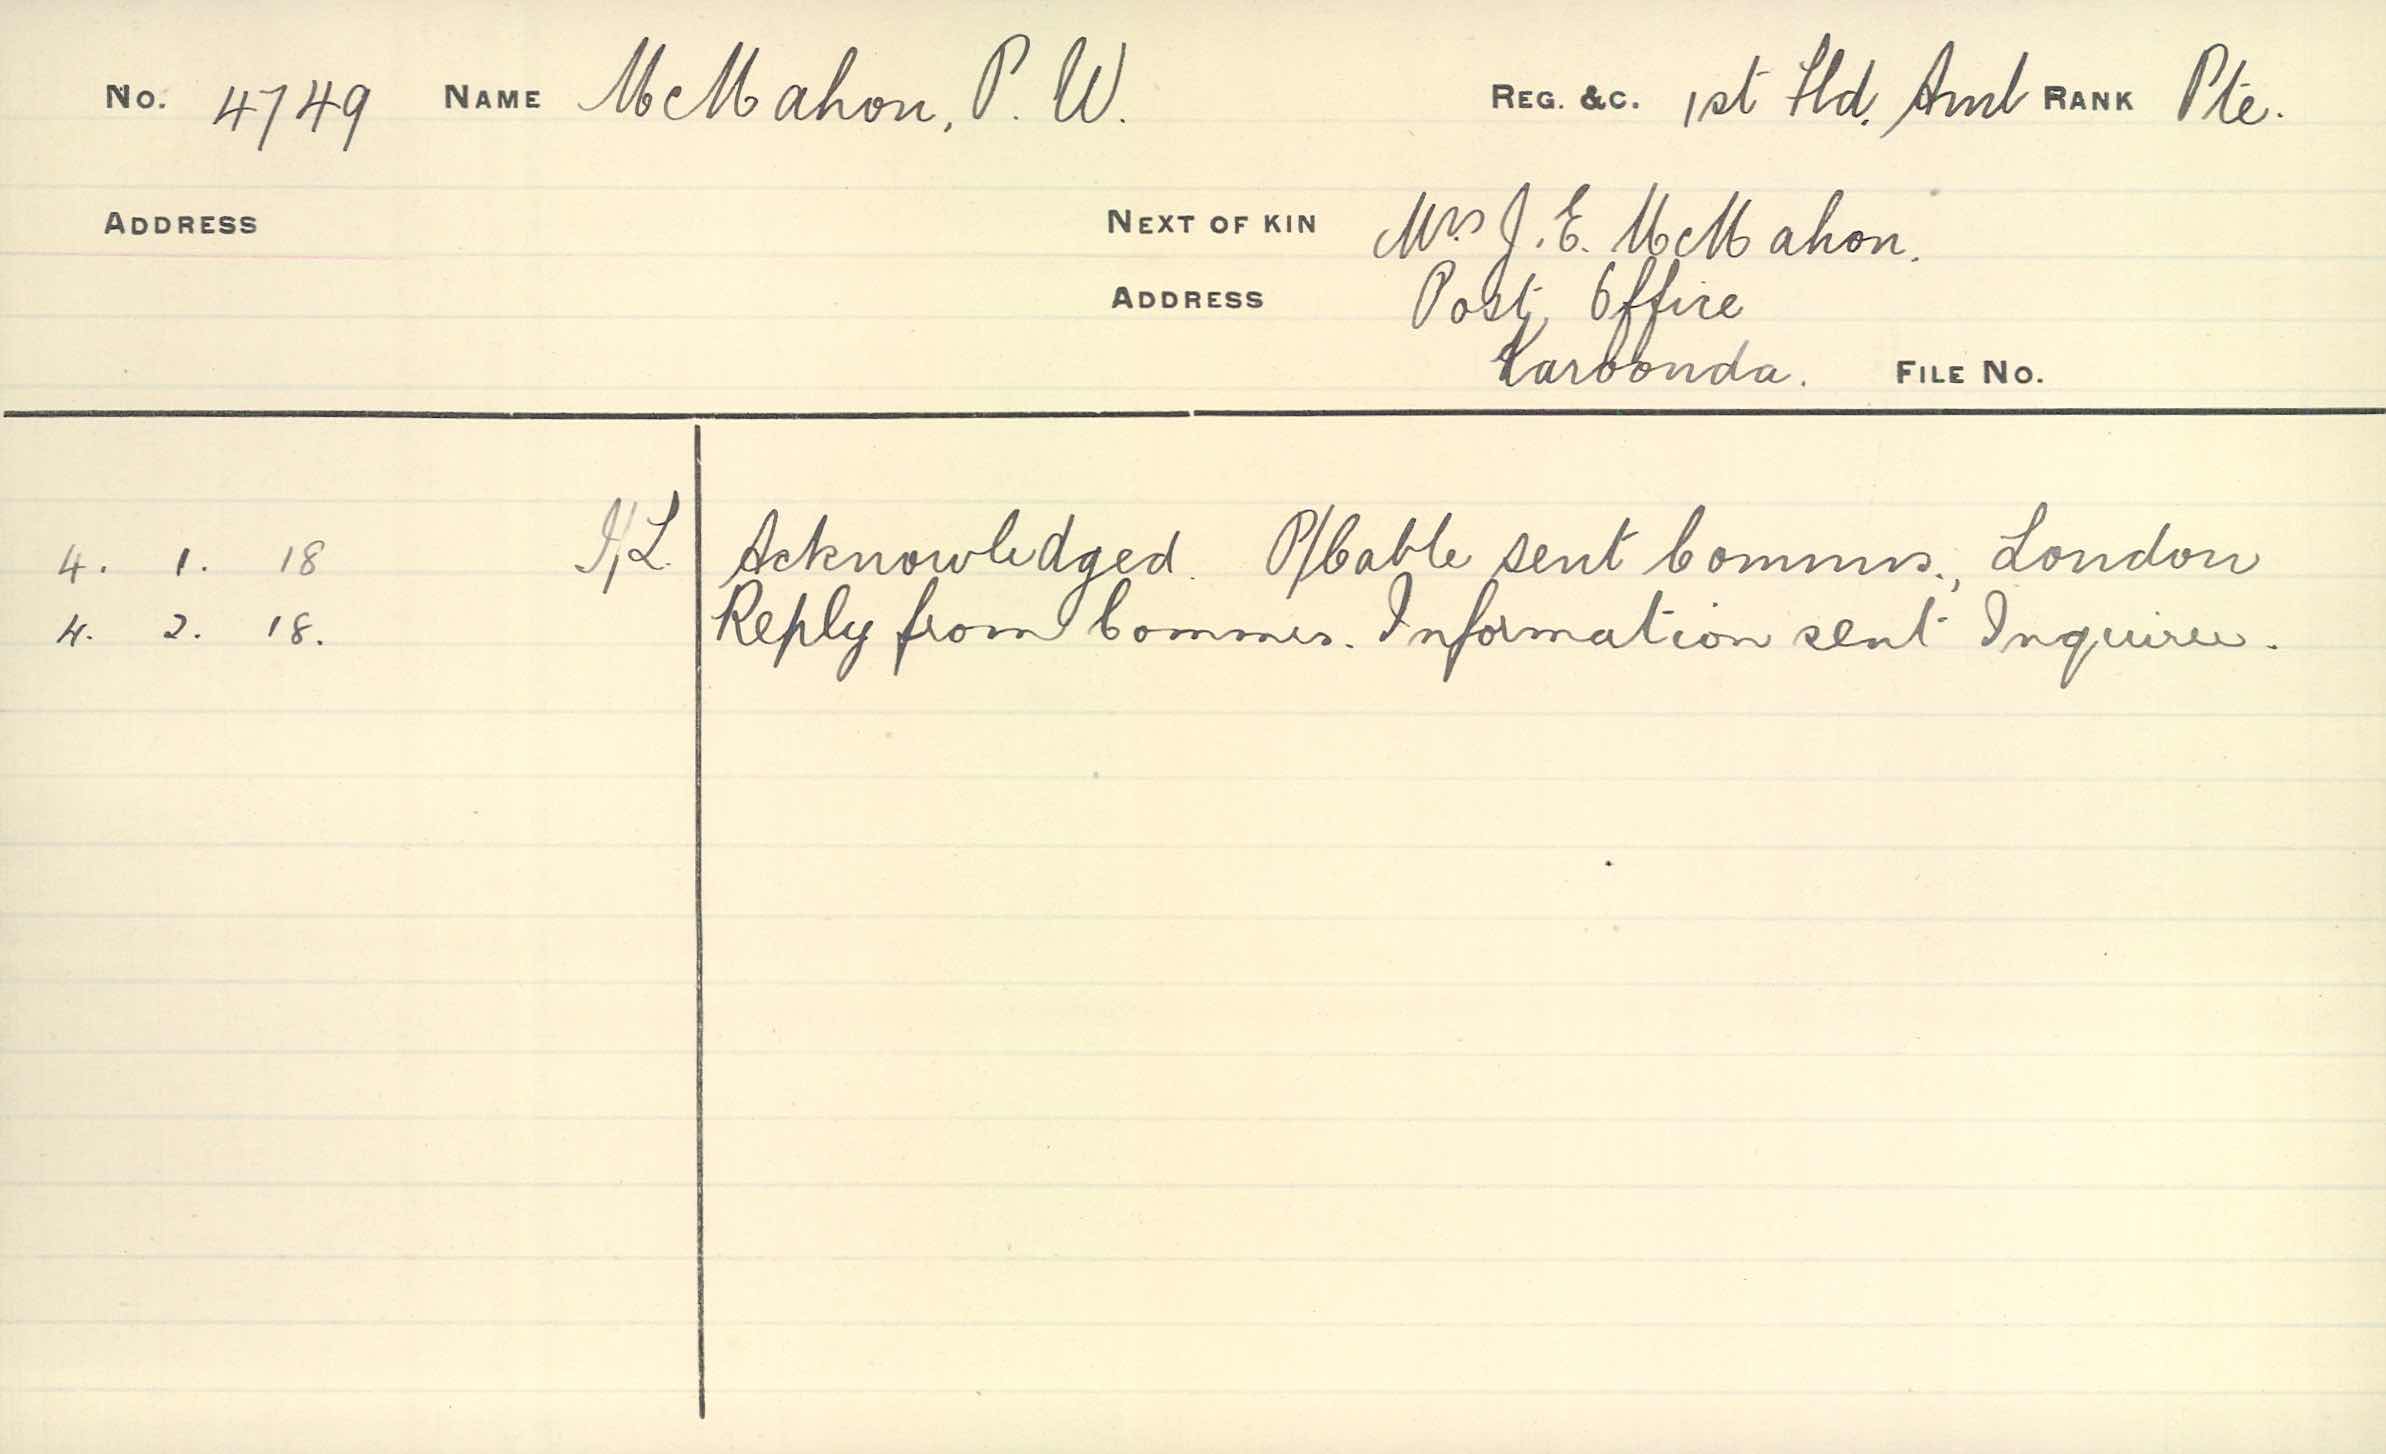 No. 4749 NAME McMahon, P. W. REG. &C. 1st Fld. Amb RANK Pte.
ADDRESS NEXT OF KIN Mrs J. E. McMahon.
ADDRESS Post Office
Karoonda. FILE No.
4. 1. 18 I/L. Acknowledged. P/Cable sent Commrs., London
4. 2. 18. Reply from Commrs. Information sent Inquirer.